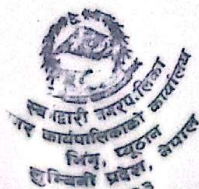 स्वर्गद्वारी नगरपालिका
नगर कार्यपालिकाको कार्यालय
भिंगृ, प्यूठान
लुम्बिनी प्रदेश, नेपाल